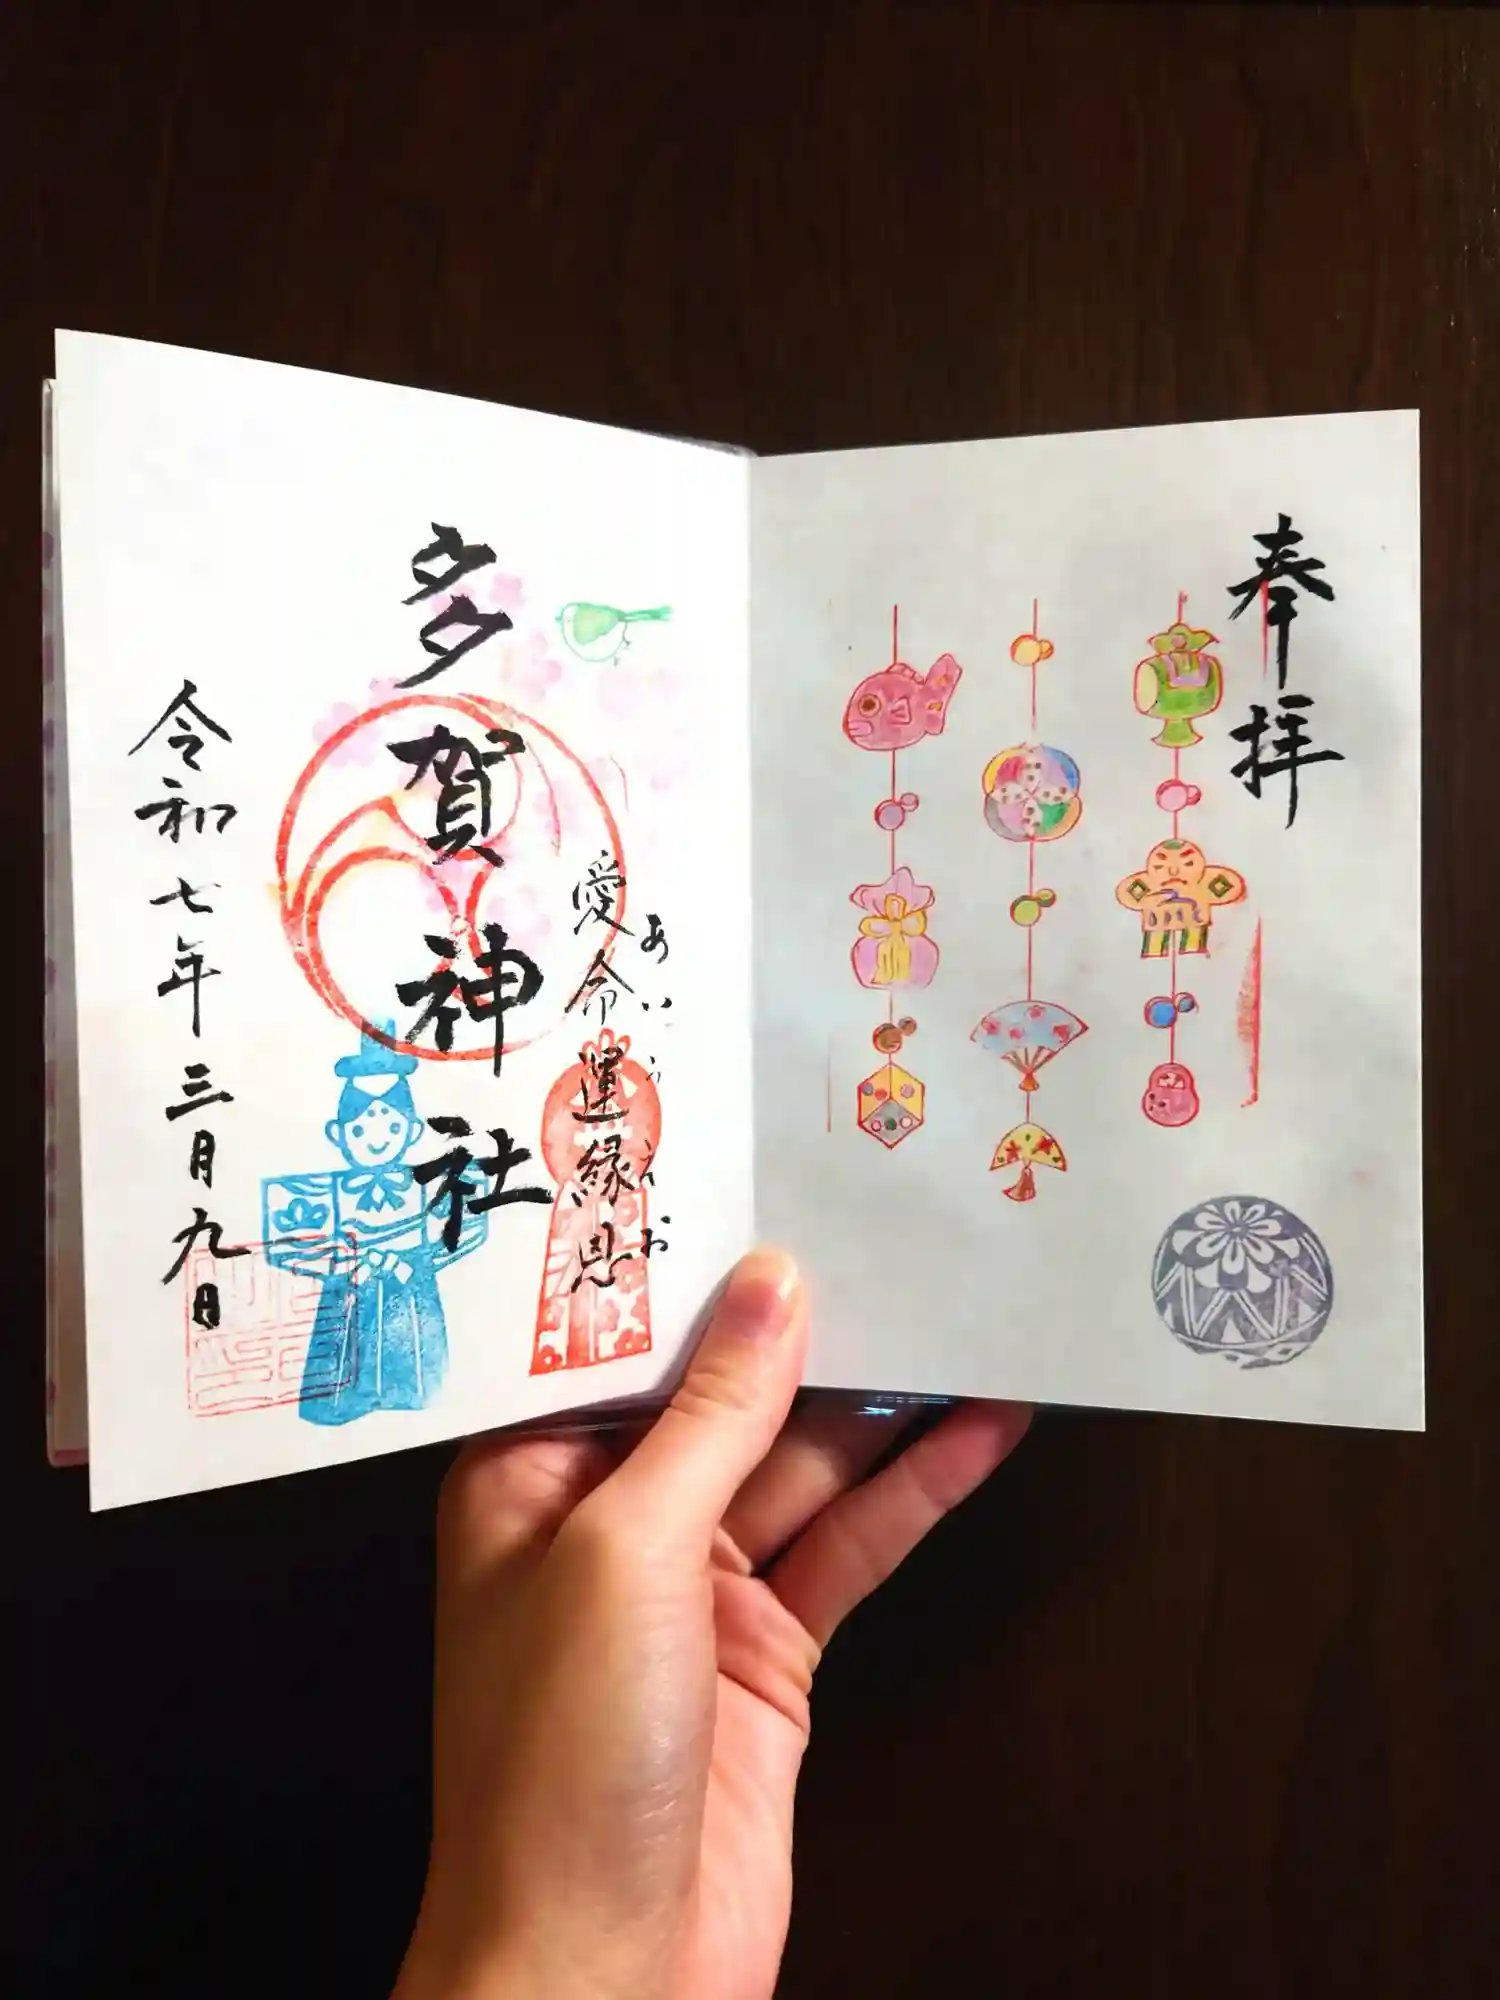 奉拝
愛命運縁恩
あいうえお
多賀神社
令和七年三月九日